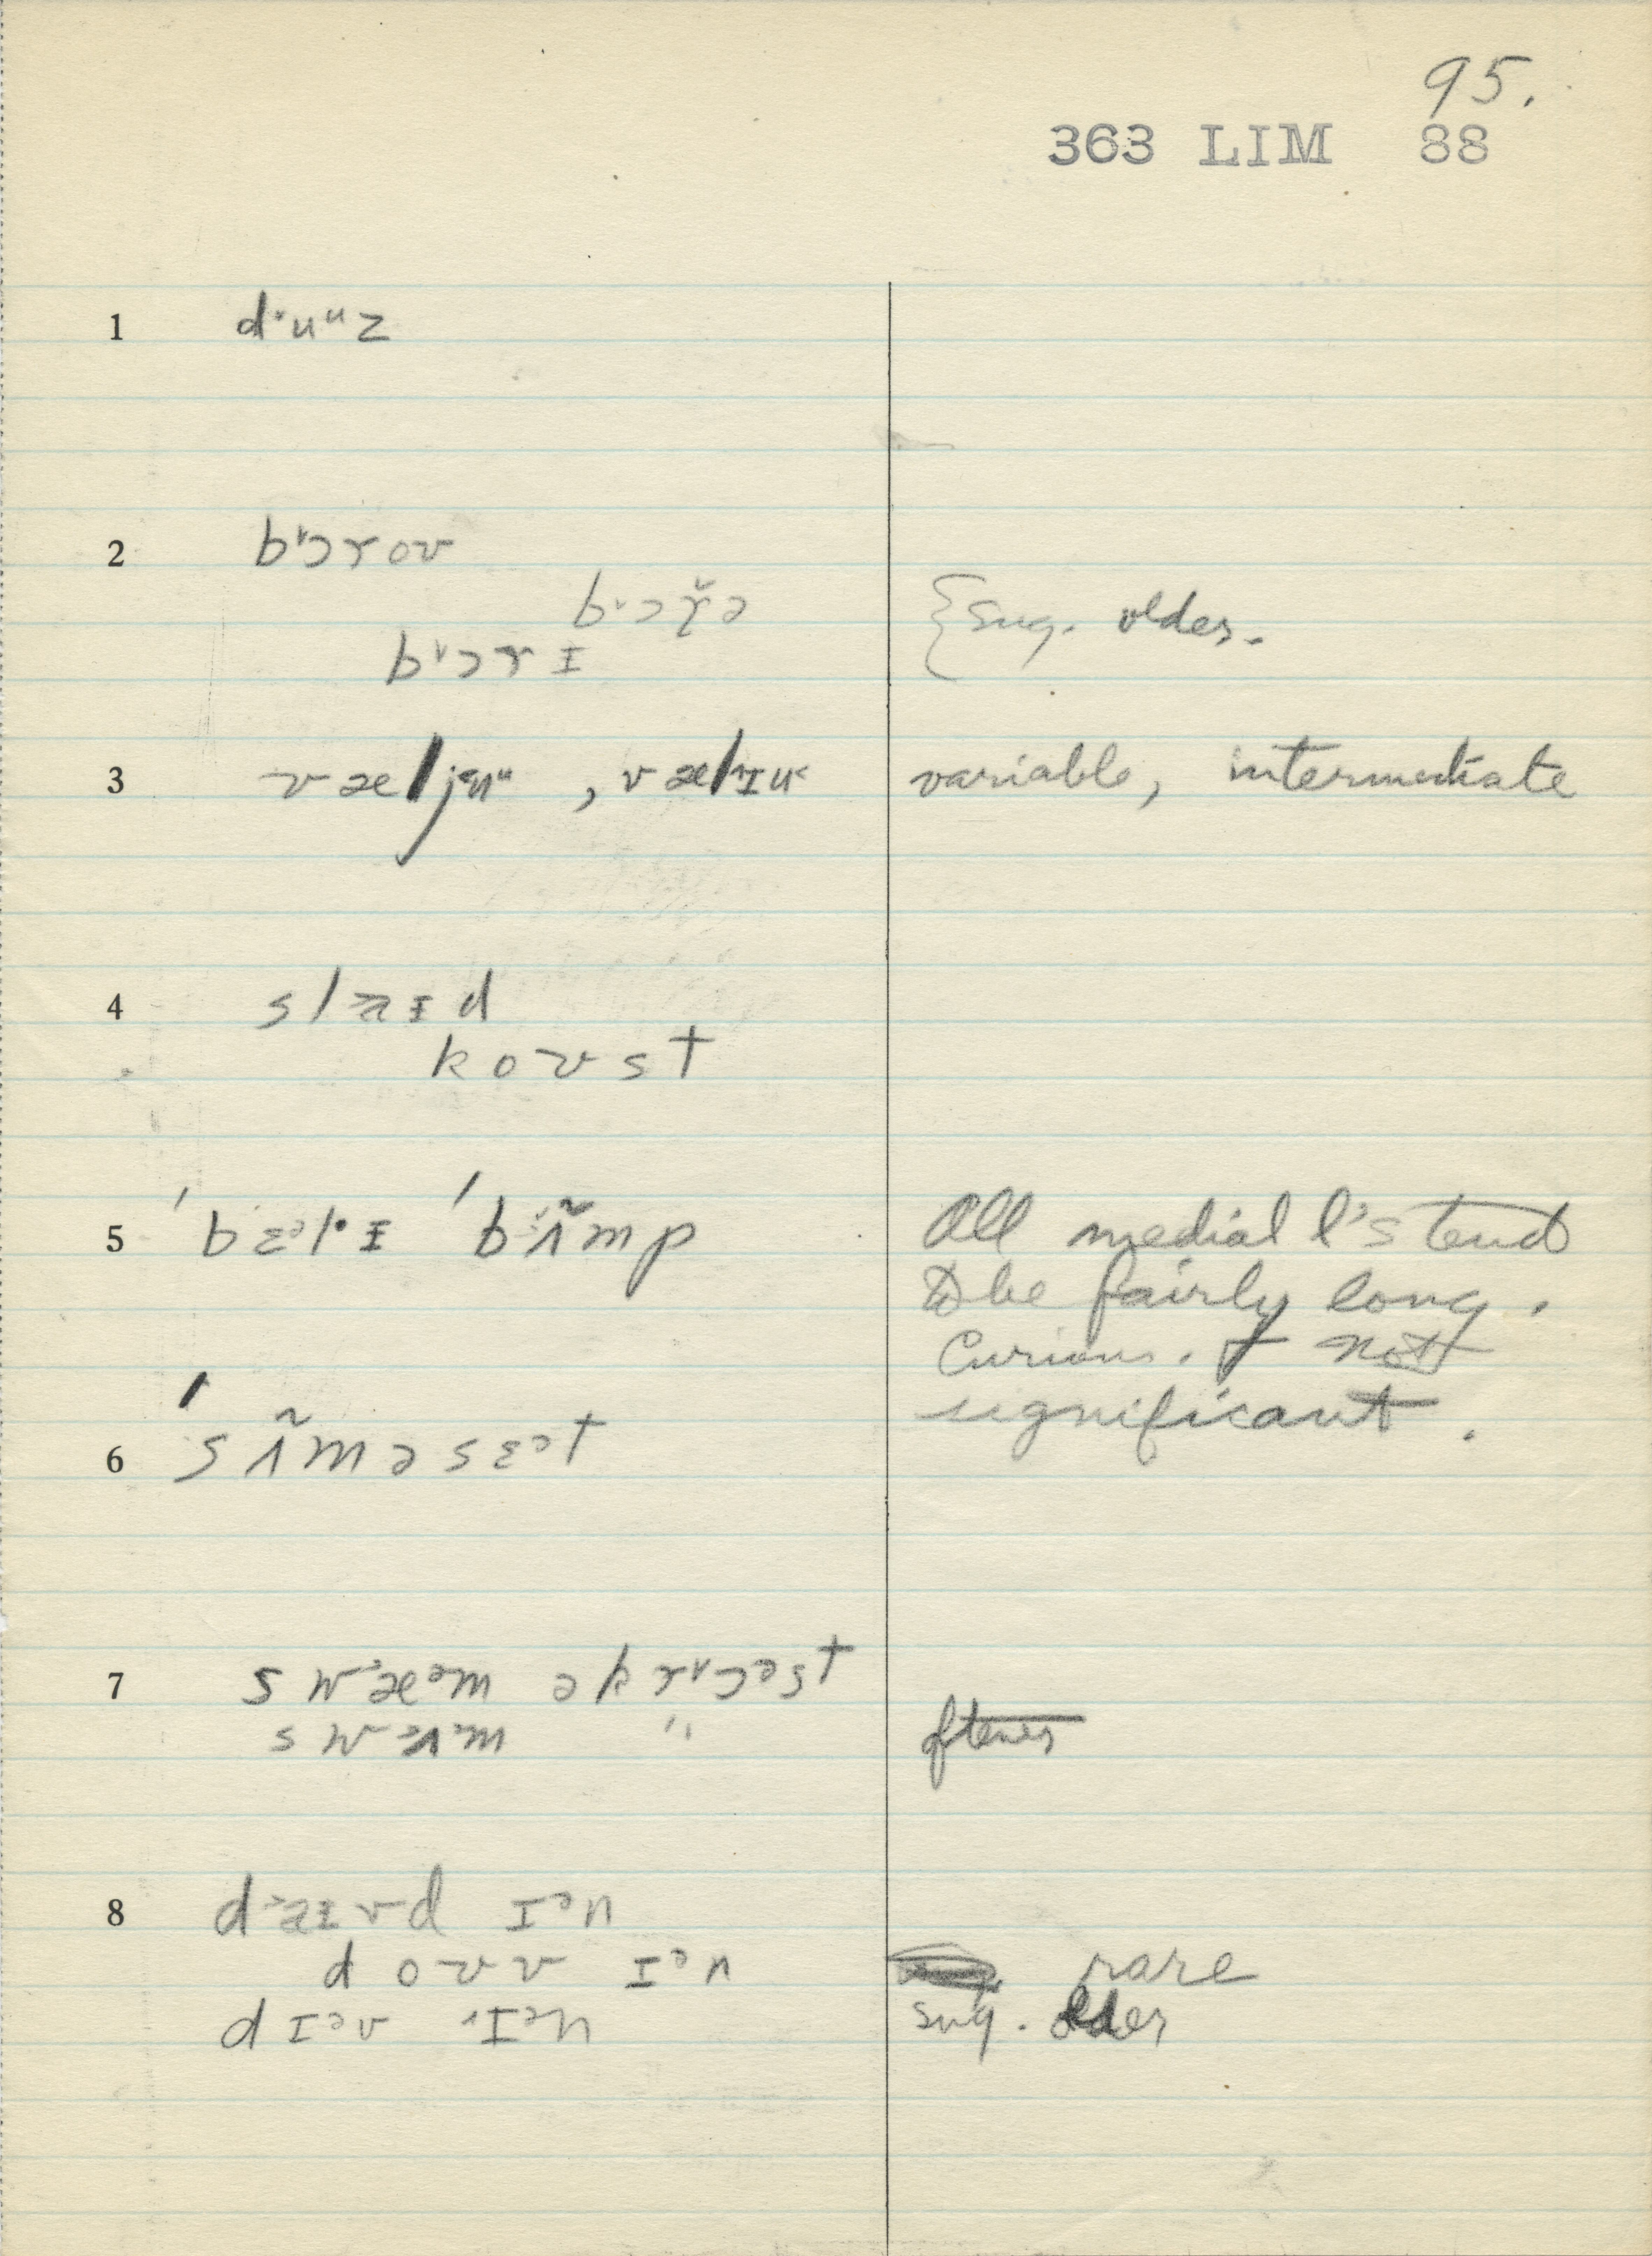 95.
363 LIM 88
1 dˑuᵘz
2 b'ɔrov
b'ɔr̆ə {sug. older.
b'ɔrɪ
3 væljuᵘ, vælɪu variable, intermediate
4 slaɪd
koʊst
5 ˈbɛᵊlˑɪ ˈbʌ̃mp All medial l's tend
to be fairly long.
Curious. & not
significant.
6 ˈsʌ̃məsɛᵊt
7 swæᵊm əkrɔᵊst
swʌm " oftener
8 daɪvd ɪᵊn
doʊv ɪᵊn rare
dɪᵊv ɪᵊn sug. older